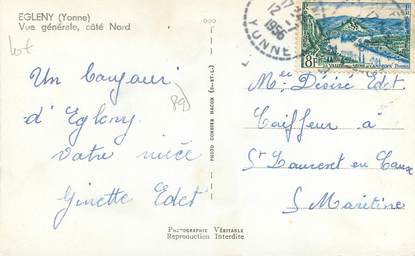 EGLENY (Yonne)
Vue générale, côté Nord
lot
89
Un bonjour
d'Egleny
votre nièce
Ginette Edet
PHOTO COMBIER MACON (S.-ET-L.)
PHOTOGRAPHIE VÉRITABLE
Reproduction Interdite
17
12
1956
YONNE
8F
Mr Désiré Edet
Coiffeur à
St Laurent en Caux
S Maritime